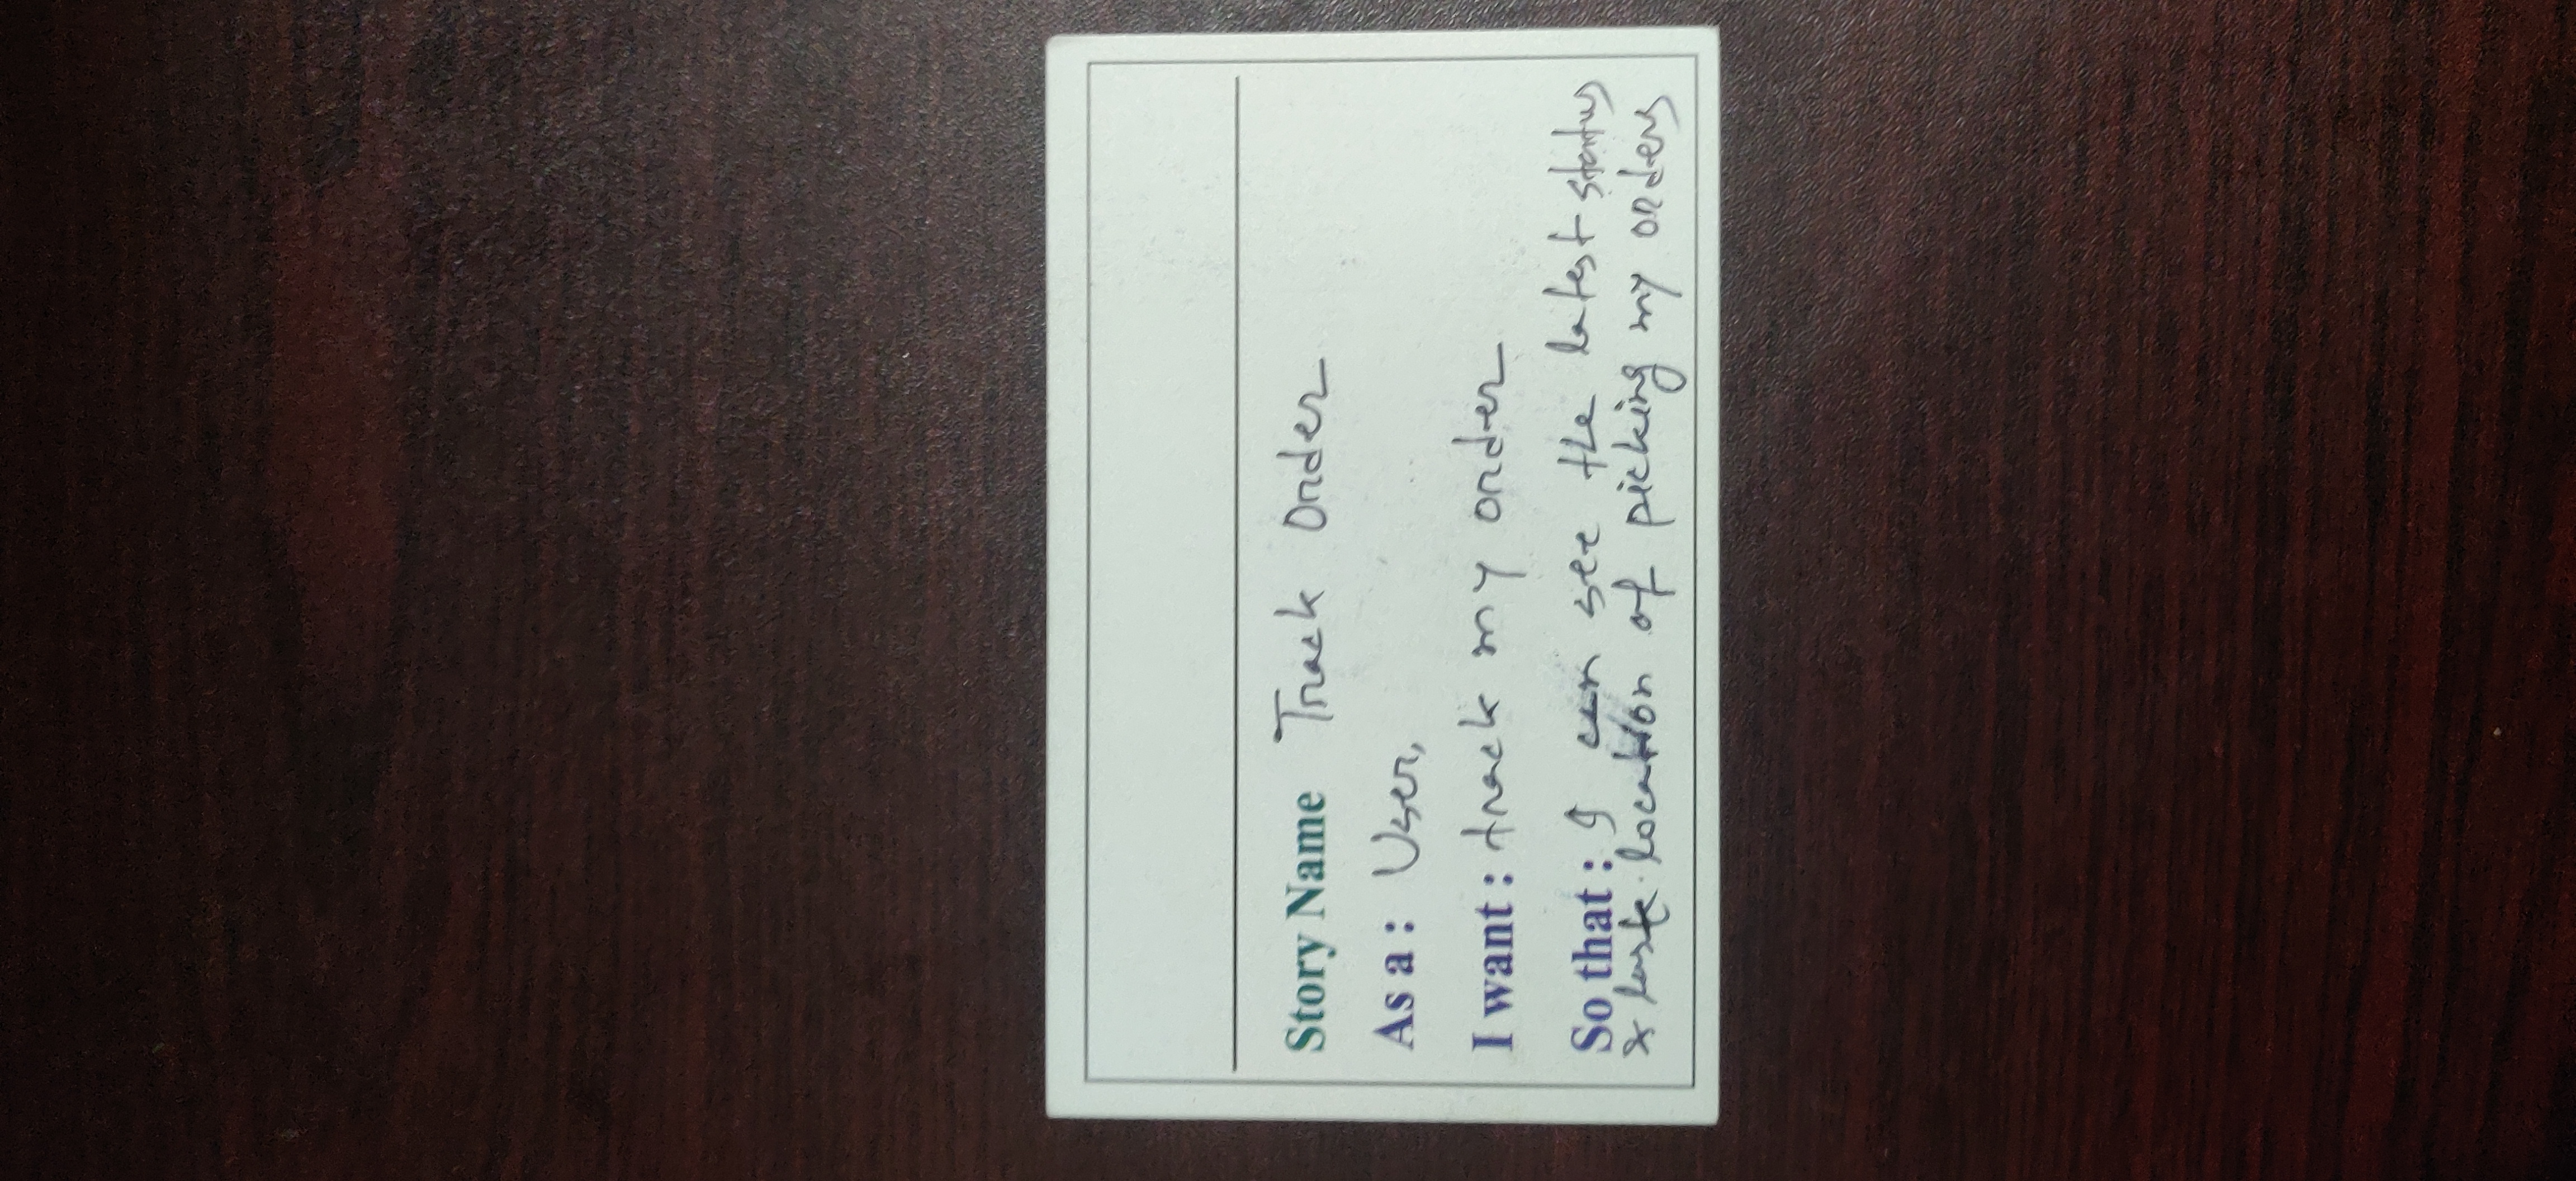 Story Name Track Order
As a : User,
I want : track my order
So that : I can see the latest status
& last location of picking my orders